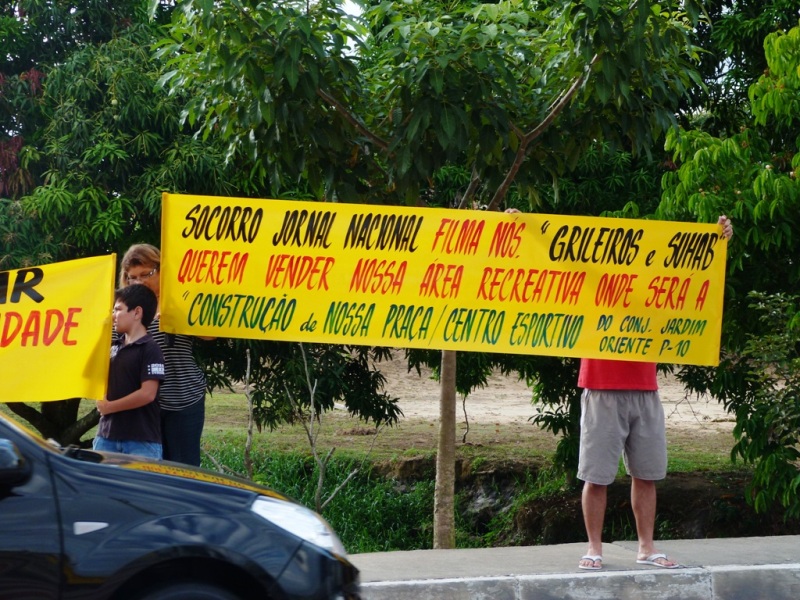 AR
DADE
SOCORRO JORNAL NACIONAL FILMA NÓS. "GRILEIROS e SUHAB"
QUEREM VENDER NOSSA ÁREA RECREATIVA ONDE SERÁ A
"CONSTRUÇÃO de NOSSA PRAÇA/CENTRO ESPORTIVO DO CONJ. JARDIM
ORIENTE P-10